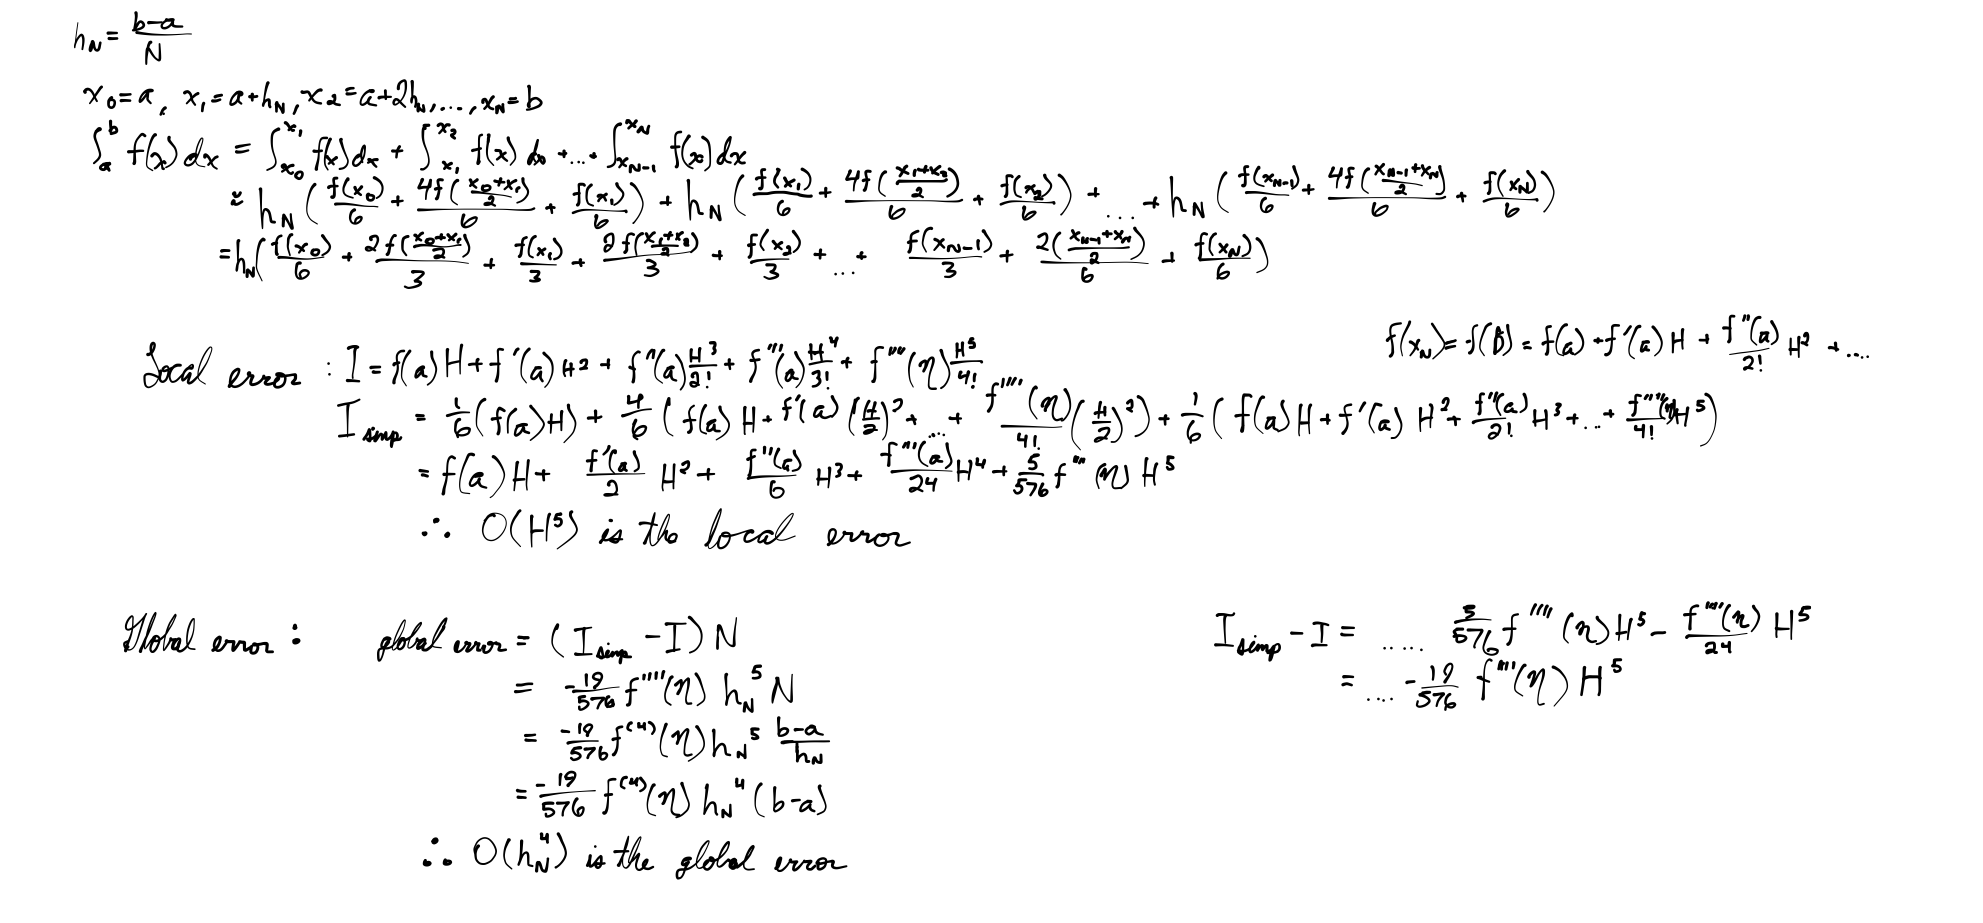 h_N = (b-a)/N
x_0 = a, x_1 = a+h_N, x_2 = a+2h_N, ..., x_N = b
∫_a^b f(x) dx = ∫_{x_0}^{x_1} f(x) dx + ∫_{x_1}^{x_2} f(x) dx + ... + ∫_{x_{N-1}}^{x_N} f(x) dx
≈ h_N ( f(x_0)/6 + 4f((x_0+x_1)/2)/6 + f(x_1)/6 ) + h_N ( f(x_1)/6 + 4f((x_1+x_2)/2)/6 + f(x_2)/6 ) + ... + h_N ( f(x_{N-1})/6 + 4f((x_{N-1}+x_N)/2)/6 + f(x_N)/6 )
= h_N ( f(x_0)/6 + 2f((x_0+x_1)/2)/3 + f(x_1)/3 + 2f((x_1+x_2)/2)/3 + f(x_2)/3 + ... + f(x_{N-1})/3 + 2((x_{N-1}+x_N)/2)/6 + f(x_N)/6 )
f(x_N) = f(b) = f(a) + f'(a) H + f''(a)/2! H^2 + ....
Local error : I = f(a) H + f'(a) H^2 + f''(a) H^3/2! + f'''(a) H^4/3! + f''''(η) H^5/4!
I_simp = 1/6 (f(a)H) + 4/6 ( f(a) H + f'(a) (H/2)^2 + ... + f''''(η)/4! (H/2)^2 ) + 1/6 ( f(a)H + f'(a) H^2 + f''(a)/2! H^3 + ... + f''''(η)/4! H^5 )
= f(a) H + f'(a)/2 H^2 + f''(a)/6 H^3 + f'''(a)/24 H^4 + 5/576 f''''(η) H^5
∴ O(H^5) is the local error
Global error : global error = (I_simp - I) N
= -19/576 f''''(η) h_N^5 N
= -19/576 f^(4)(η) h_N^5 (b-a)/h_N
= -19/576 f^(4)(η) h_N^4 (b-a)
∴ O(h_N^4) is the global error
I_simp - I = ..... 5/576 f''''(η) H^5 - f''''(η)/24 H^5
= .... -19/576 f''''(η) H^5